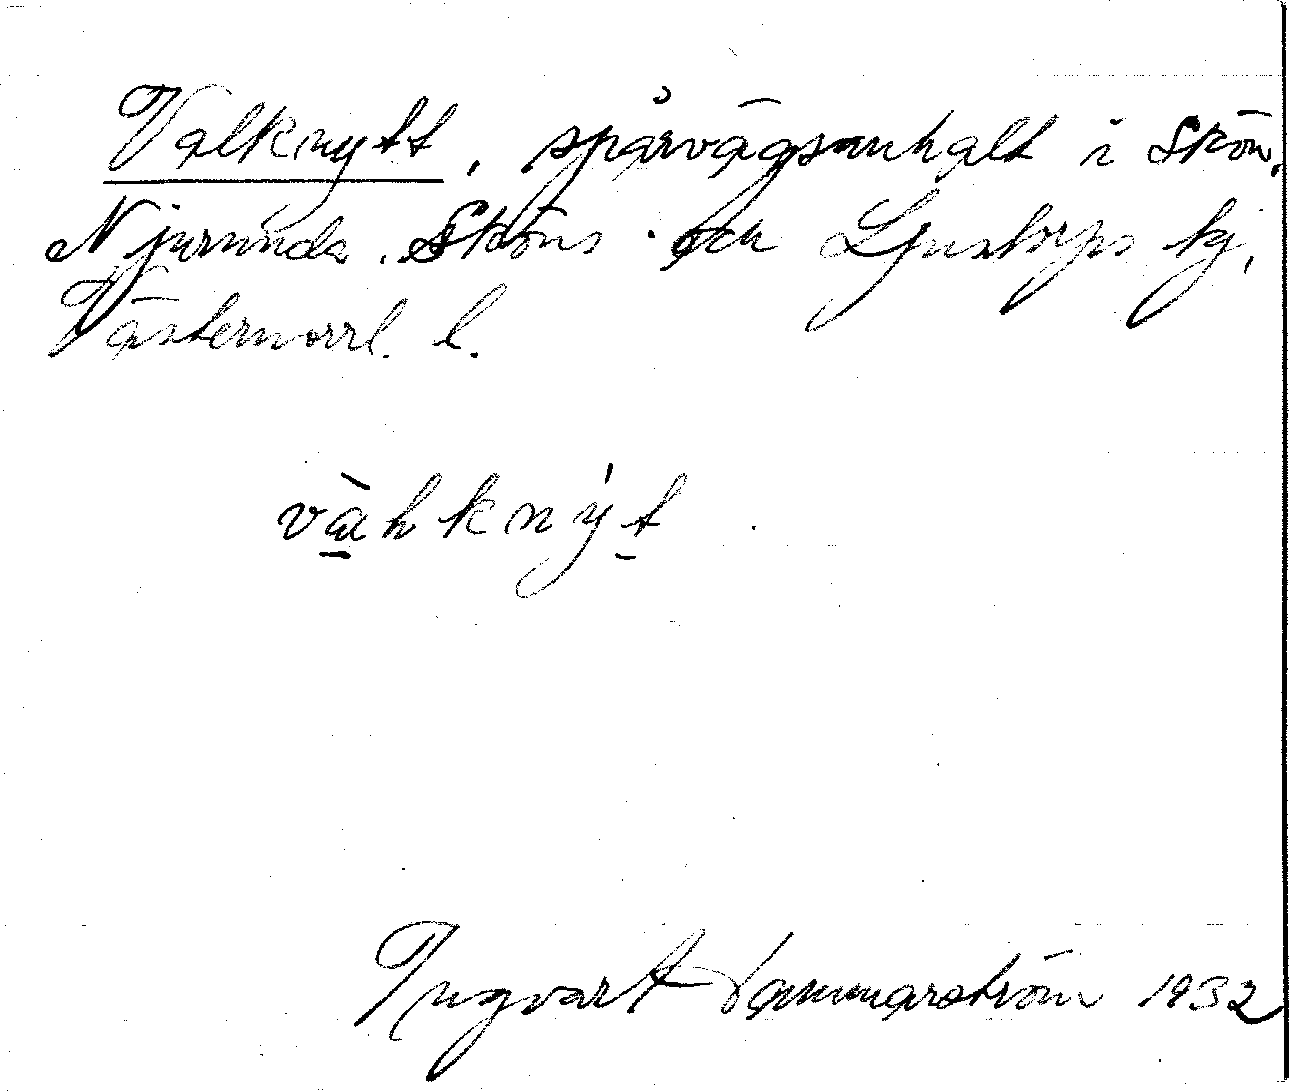 Valknytt, spårvägsanhalt i Skön,
Njurunda, Sköns och Ljustorps tg,
Västernorrl. l.
vàhknýt
Ingvart Hammarström 1932